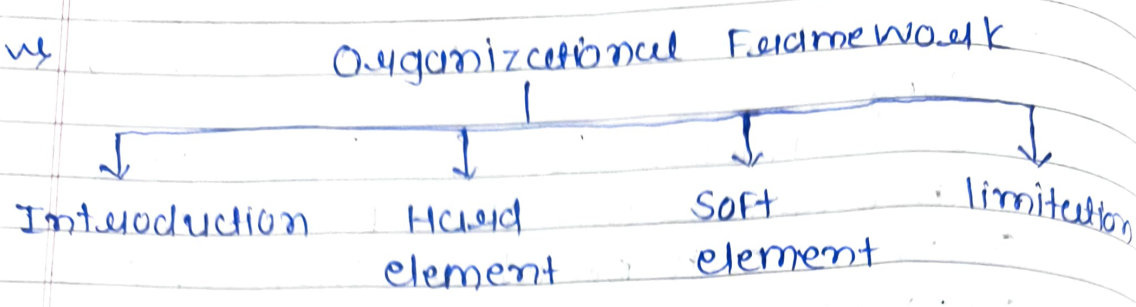 Organizational Framework
Introduction
Hard
element
Soft
element
limitation